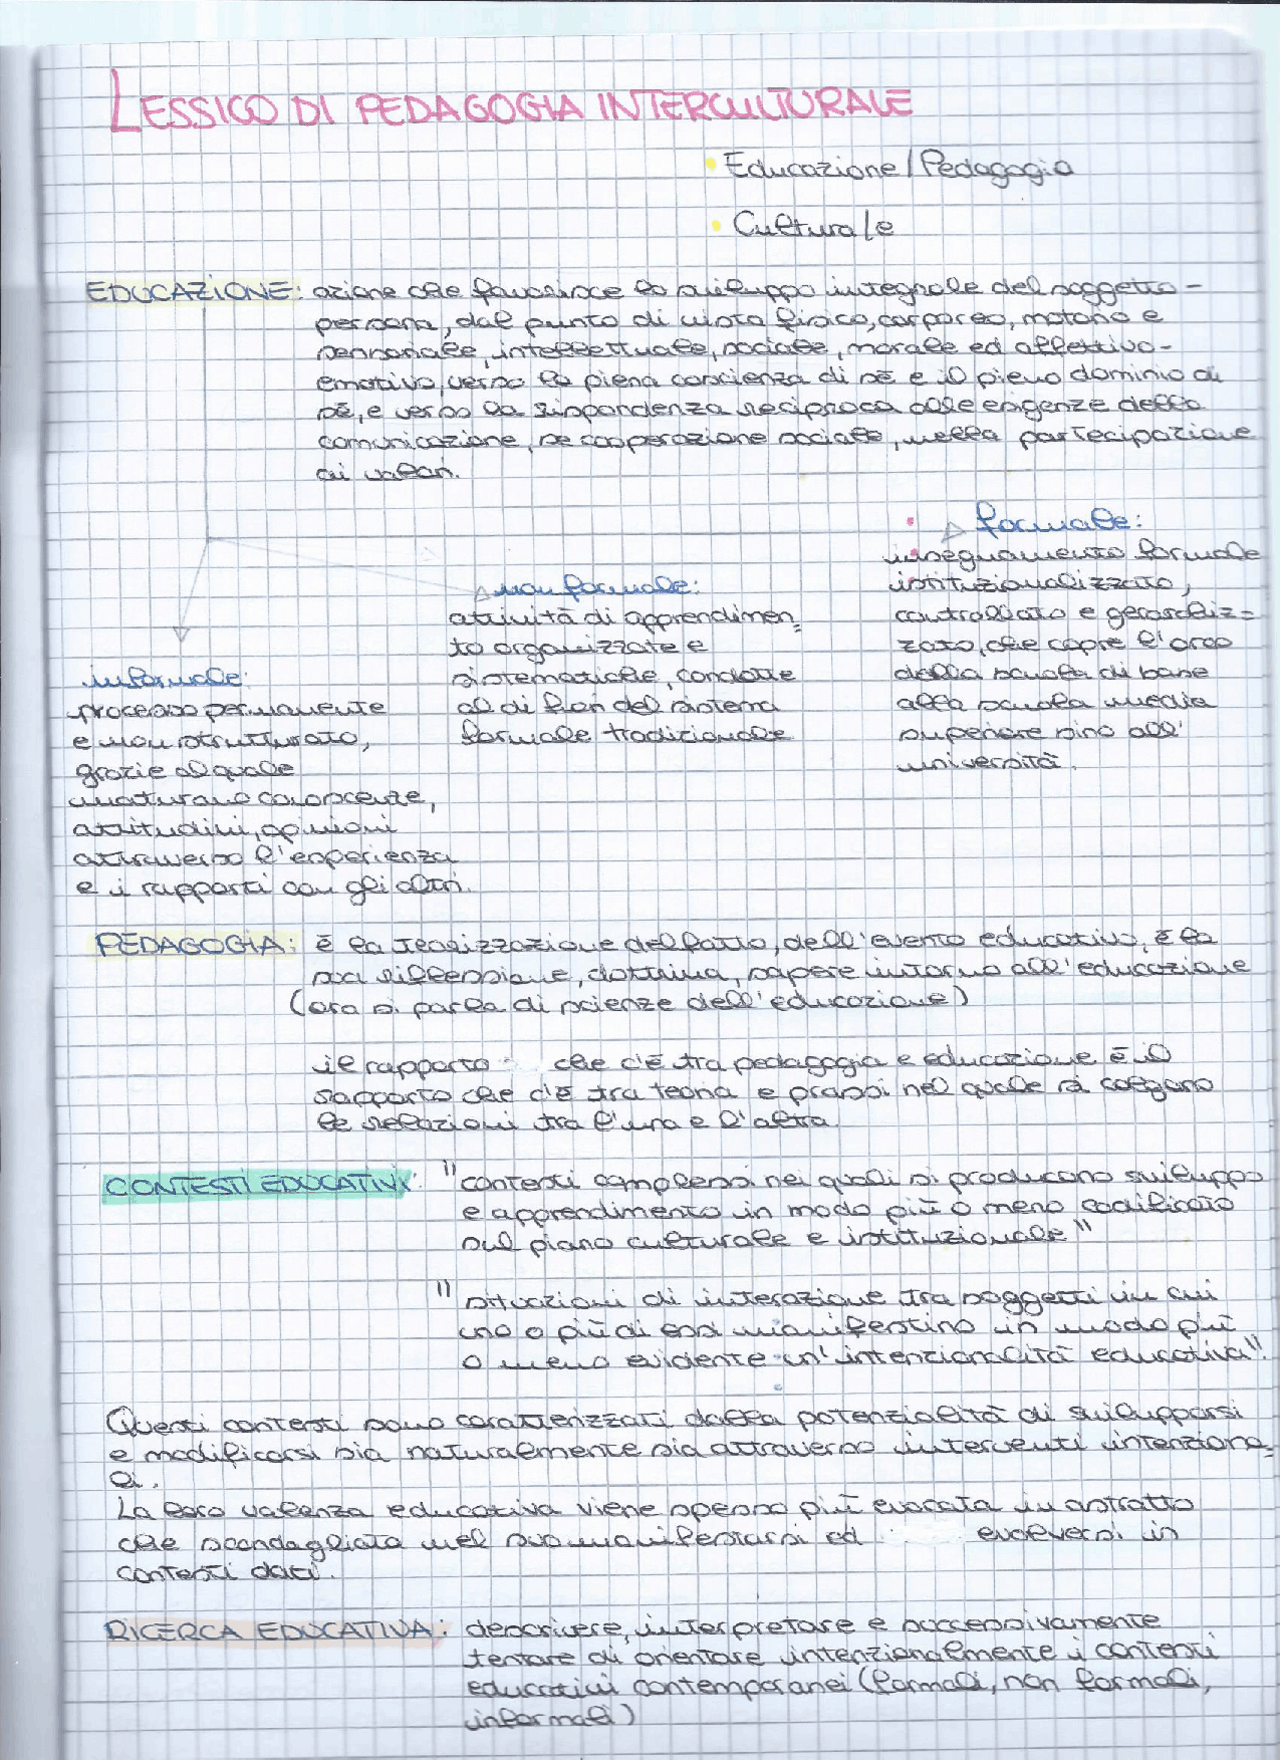 LESSICO DI PEDAGOGIA INTERCULTURALE
• Educazione/Pedagogia
• Culturale
EDUCAZIONE: azione che favorisce lo sviluppo integrale del soggetto-
persona, dal punto di vista fisico, corporeo, motorio e
sensoriale, intellettuale, sociale, morale ed affettivo-
emotivo, verso la piena coscienza di sé e il pieno dominio di
sé, e verso la rispondenza reciproca alle esigenze della
comunicazione, se cooperazione sociale, nella partecipazione
ai valori.
formale:
insegnamento formale
istituzionalizzato,
controllato e gerarchiz=
zato, che copre l'arco
della scuola di base
alla scuola media
superiore sino all'
università.
non formale:
attività di apprendimen=
to organizzate e
sistematiche, condotte
al di fuori del sistema
formale tradizionale
informale:
processo permanente
e non strutturato,
grazie al quale
maturano conoscenze,
attitudini, opinioni
attraverso l'esperienza
e i rapporti con gli altri.
PEDAGOGIA: è la teorizzazione del fatto, dell'evento educativo, è la
sua riflessione, dottrina, sapere intorno all'educazione
(ora si parla di scienze dell'educazione)
il rapporto che c'è tra pedagogia e educazione è il
rapporto che c'è tra teoria e prassi nel quale si colgono
le relazioni tra l'una e l'altra
CONTESTI EDUCATIVI: "contesti complessi nei quali si producono sviluppo
e apprendimento in modo più o meno codificato
sul piano culturale e istituzionale"
"situazioni di interazione tra soggetti in cui
uno o più di essi manifestino in modo più
o meno evidente un'intenzionalità educativa".
Questi contesti sono caratterizzati dalla potenzialità di svilupparsi
e modificarsi sia naturalmente sia attraverso interventi intenziona=
li.
La loro valenza educativa viene spesso più evocata in astratto
che scandagliata nel suo manifestarsi ed evolversi in
contesti dati.
RICERCA EDUCATIVA: descrivere, interpretare e successivamente
tentare di orientare intenzionalmente i contesti
educativi contemporanei (formali, non formali,
informali)